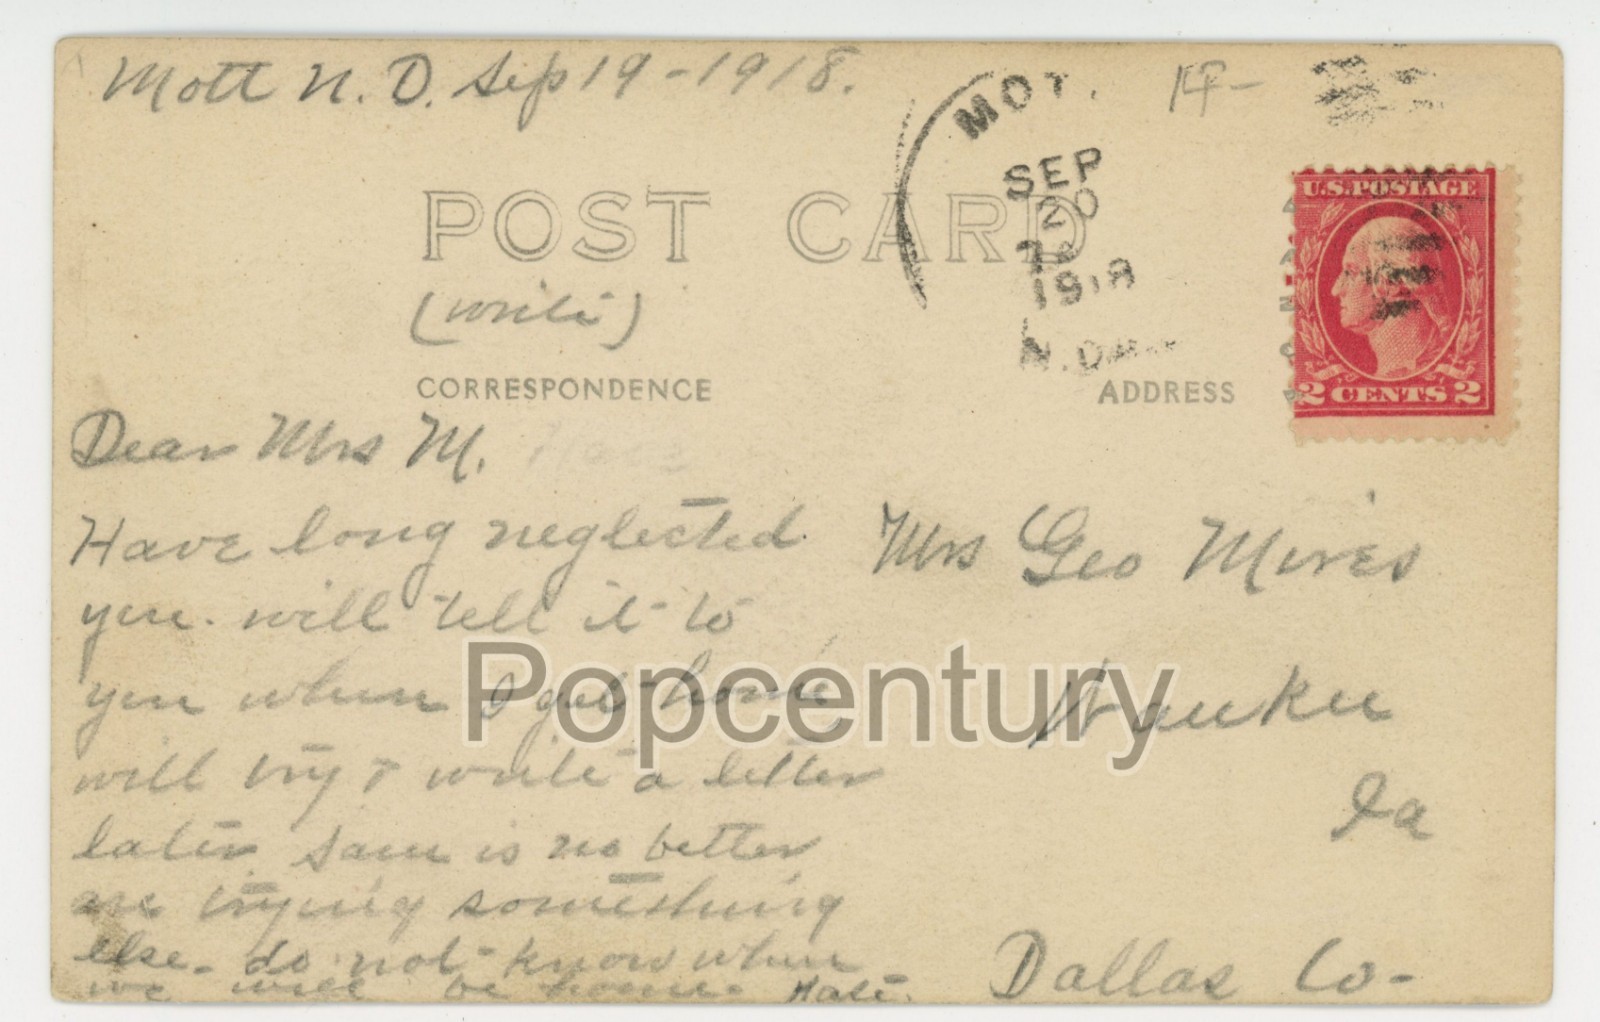 Mott N. D. Sep 19-1918.
MOT.
SEP
20
1918
N.DAK
U.S.POSTAGE
2 CENTS 2
POST CARD
(write)
CORRESPONDENCE
ADDRESS
Dear Mrs M.
Have long neglected
you. will tell it to
you when I get home
will try & write a letter
later Sam is no better
are trying something
else. do not know when
we will be home. Kate.
Mrs Geo Mires
Waukee
Ia
Dallas Co-
Popcentury